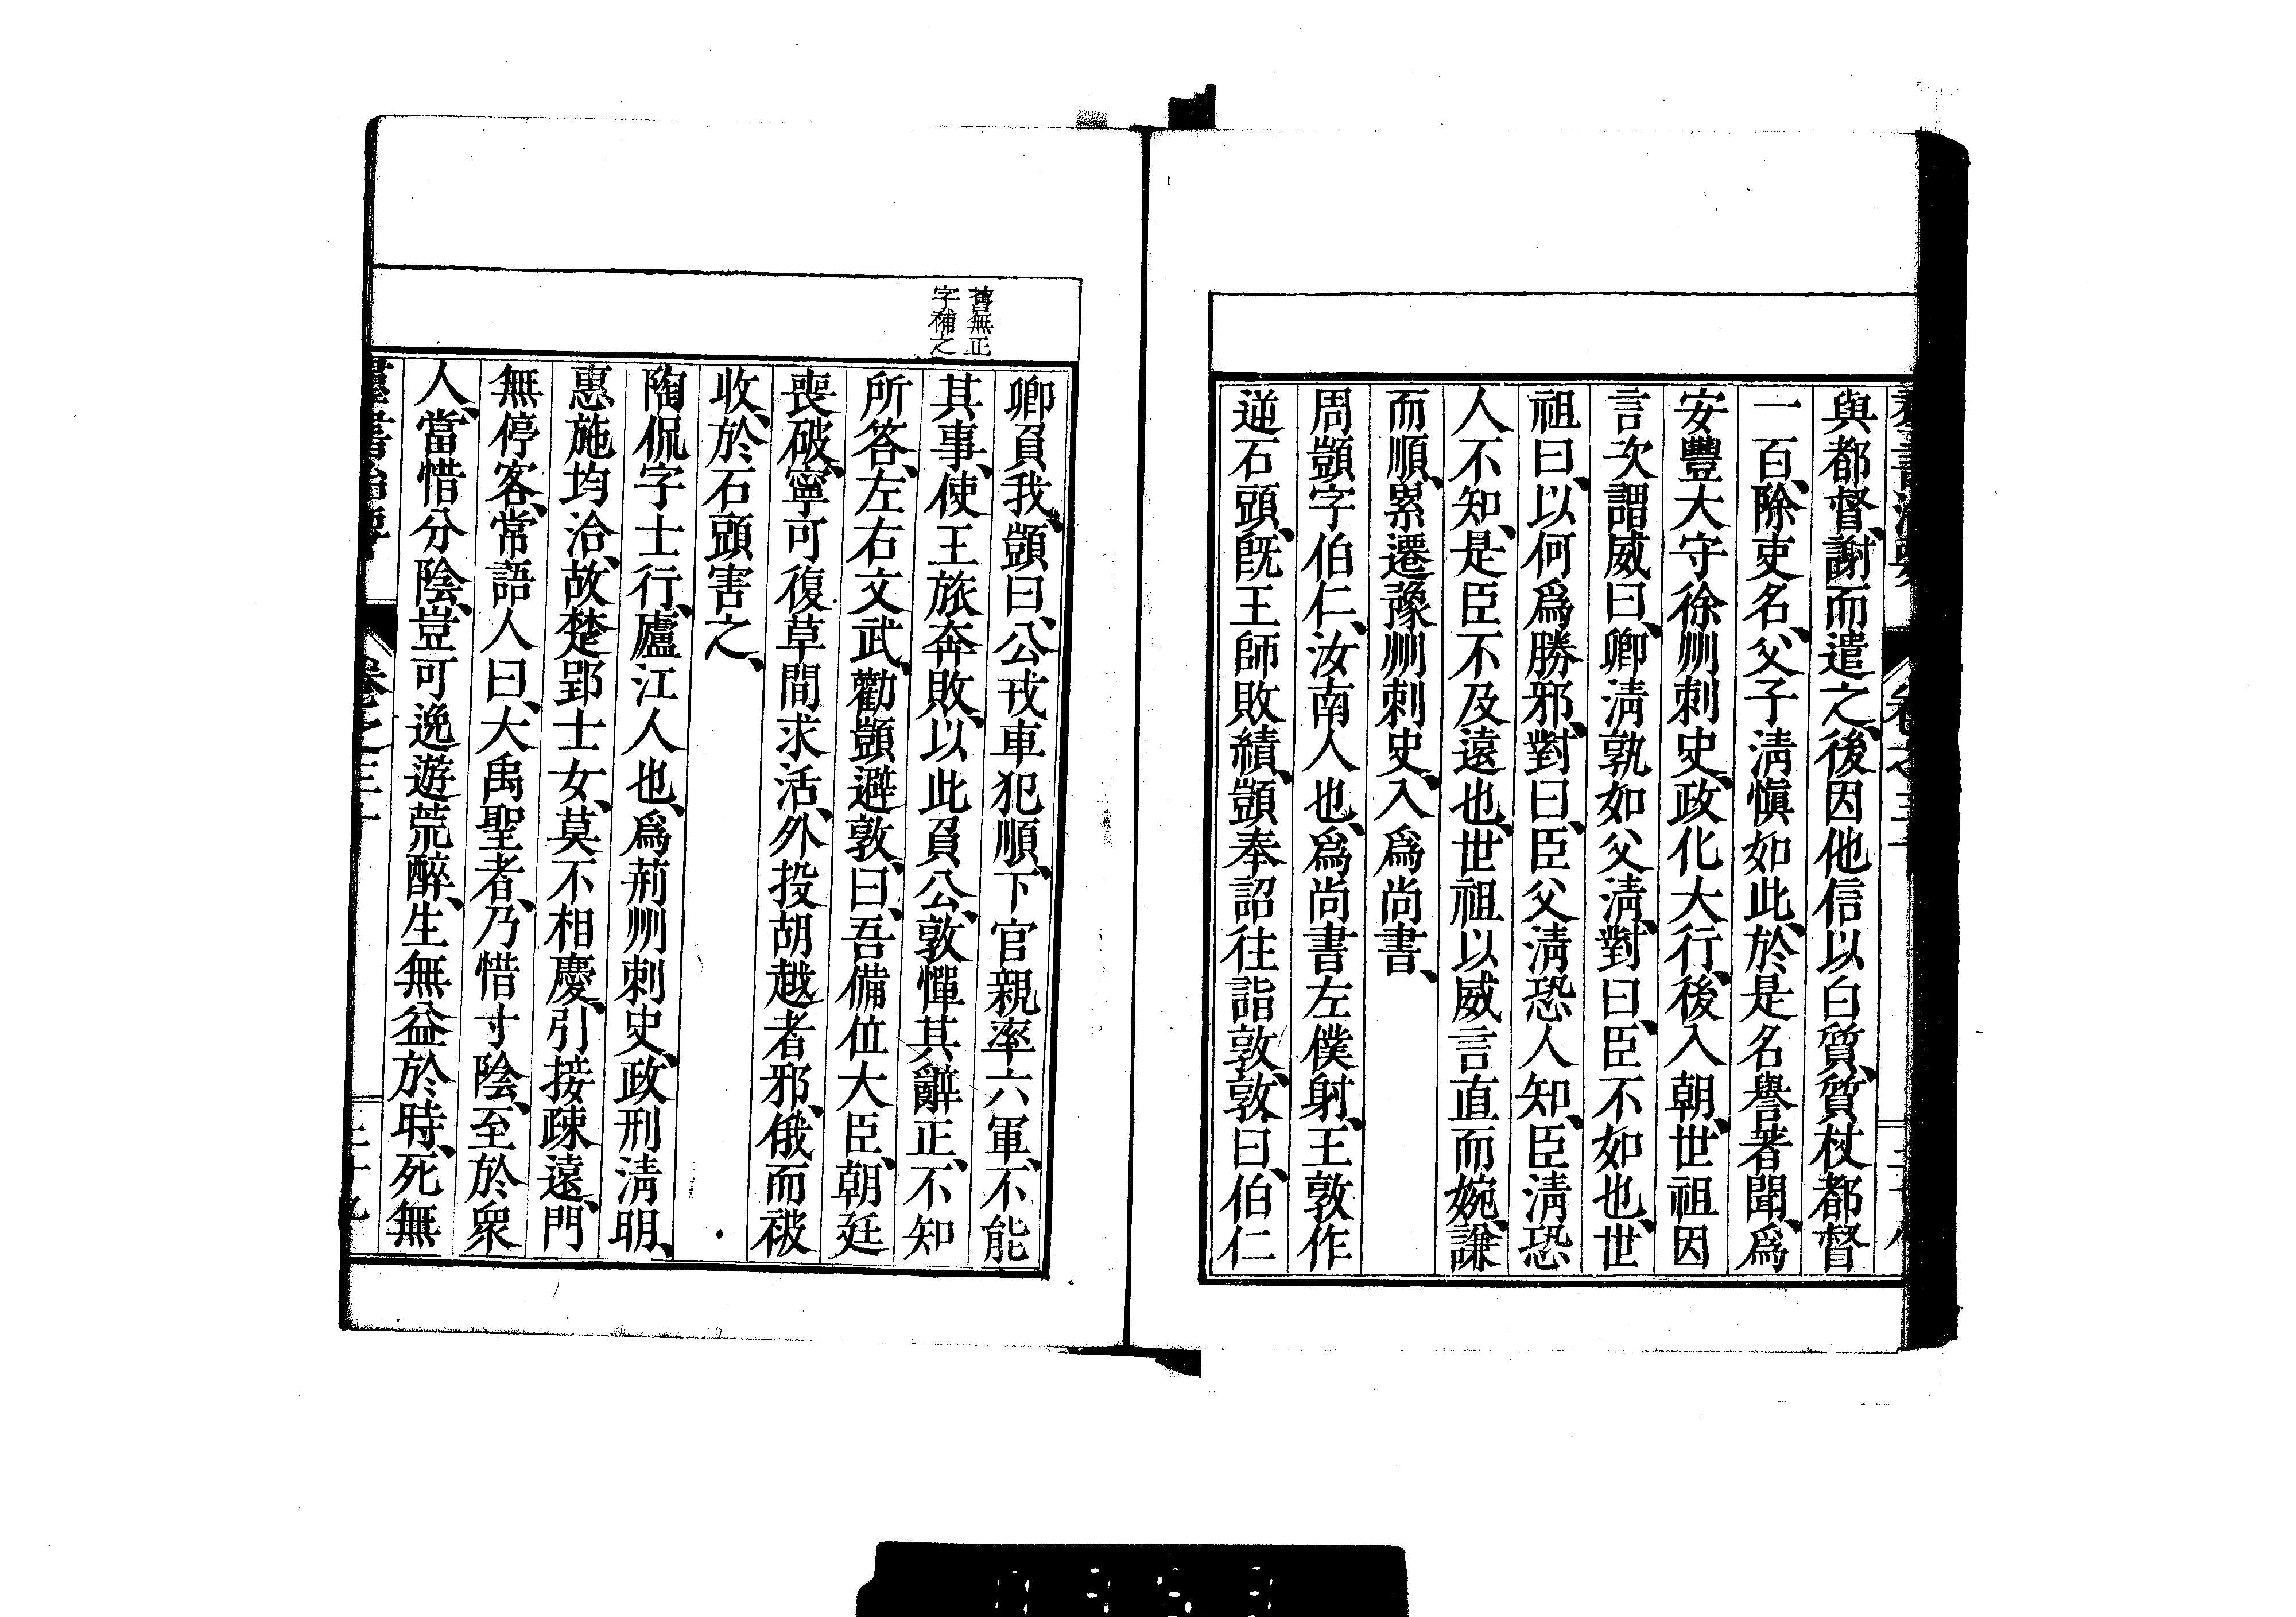 與都督、謝而遣之、後因他信以白質、質杖都督
一百、除吏名、父子淸愼如此、於是名譽著聞、爲
安豐大守徐州刺史、政化大行、後入朝、世祖因
言次謂威曰、卿淸孰如父淸、對曰、臣不如也、世
祖曰、以何爲勝邪、對曰、臣父淸恐人知、臣淸恐
人不知、是臣不及遠也、世祖以威言直而婉、謙
而順、累遷豫州刺史、入爲尚書、
周顗字伯仁、汝南人也、爲尚書左僕射、王敦作
逆石頭、旣王師敗績、顗奉詔往詣敦、敦曰、伯仁
舊無正
字補之
卿負我、顗曰、公戎車犯順、下官親率六軍、不能
其事、使王旅奔敗、以此負公、敦憚其辭正、不知
所答、左右文武、勸顗避敦、曰、吾備位大臣、朝廷
喪破、寧可復草間求活、外投胡越者邪、俄而被
收、於石頭害之、
陶侃字士行、廬江人也、爲荊州刺史、政刑淸明、
惠施均洽、故楚郢士女、莫不相慶、引接疎遠、門
無停客、常語人曰、大禹聖者、乃惜寸陰、至於衆
人、當惜分陰、豈可逸遊荒醉、生無益於時、死無